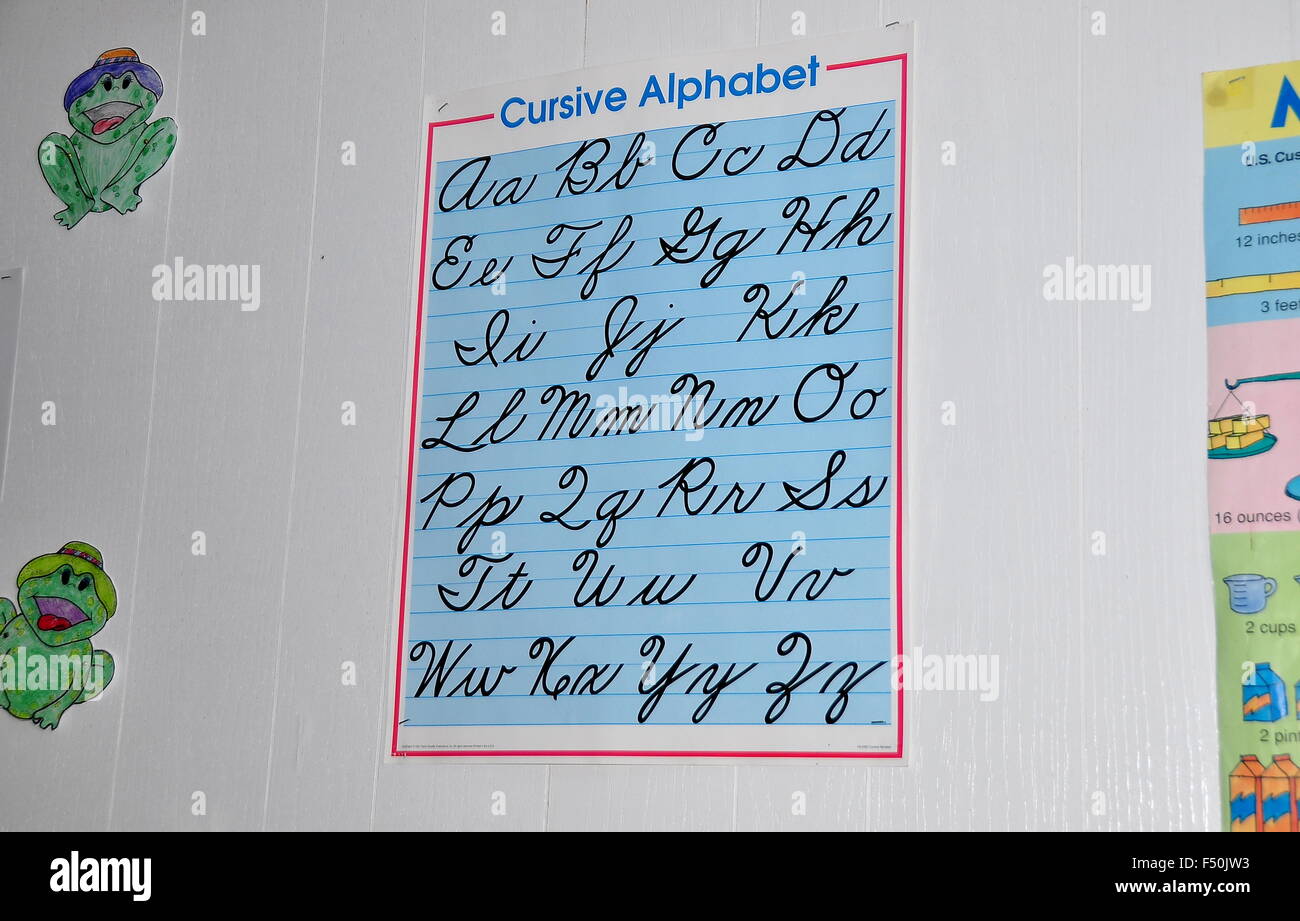 Cursive Alphabet
Aa Bb Cc Dd
Ee Ff Gg Hh
Ii Jj Kk
Ll Mm Nn Oo
Pp Qq Rr Ss
Tt Uu Vv
Ww Xx Yy Zz
U.S. Cus
12 inches
3 feet
16 ounces (
2 cups
2 pint
alamy
alamy stock photo
Image ID: F50JW3
www.alamy.com